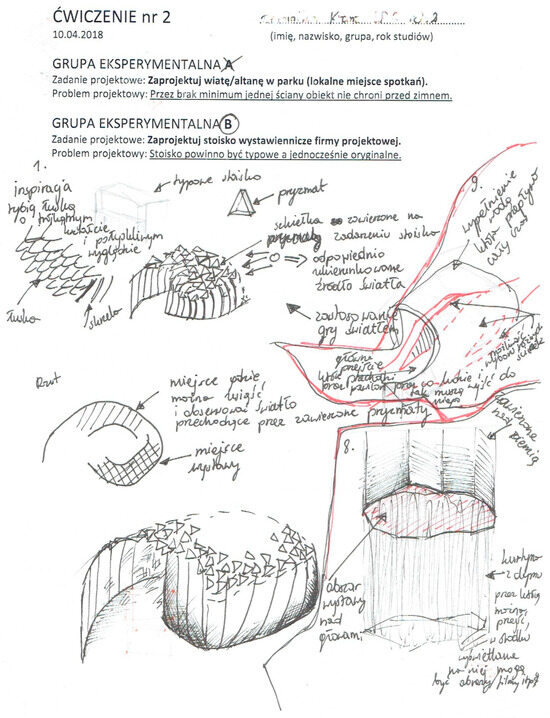 ĆWICZENIE nr 2
10.04.2018
(imię, nazwisko, grupa, rok studiów)
GRUPA EKSPERYMENTALNA A
Zadanie projektowe: Zaprojektuj wiatę/altanę w parku (lokalne miejsce spotkań).
Problem projektowy: Przez brak minimum jednej ściany obiekt nie chroni przed zimnem.
GRUPA EKSPERYMENTALNA B
Zadanie projektowe: Zaprojektuj stoisko wystawiennicze firmy projektowej.
Problem projektowy: Stoisko powinno być typowe a jednocześnie oryginalne.
1.
inspiracja
rybią łuską
o
kształcie
i
wyglądzie
łuska
typowe stoisko
pryzmat
szkiełka zawieszone na
pryzmaty zadaszeniu stoiska
odpowiednio
ukierunkowane
źródło światła
zastosowanie
gry światłem
Rzut
miejsce gdzie
można wejść
i obserwować światło
przechodzące przez zawieszone pryzmaty
miejsce
wystawy
9.
wypełnienie
wodą
cały czas
główne
przejście
przez pawilon
8.
zawieszone
nad ziemią
obszar
wystawy
nad
głowami
kurtyna
z dymu
przez którą
można
przejść,
w środku
wyświetlane
na niej mogą
być obrazy/filmy itp.